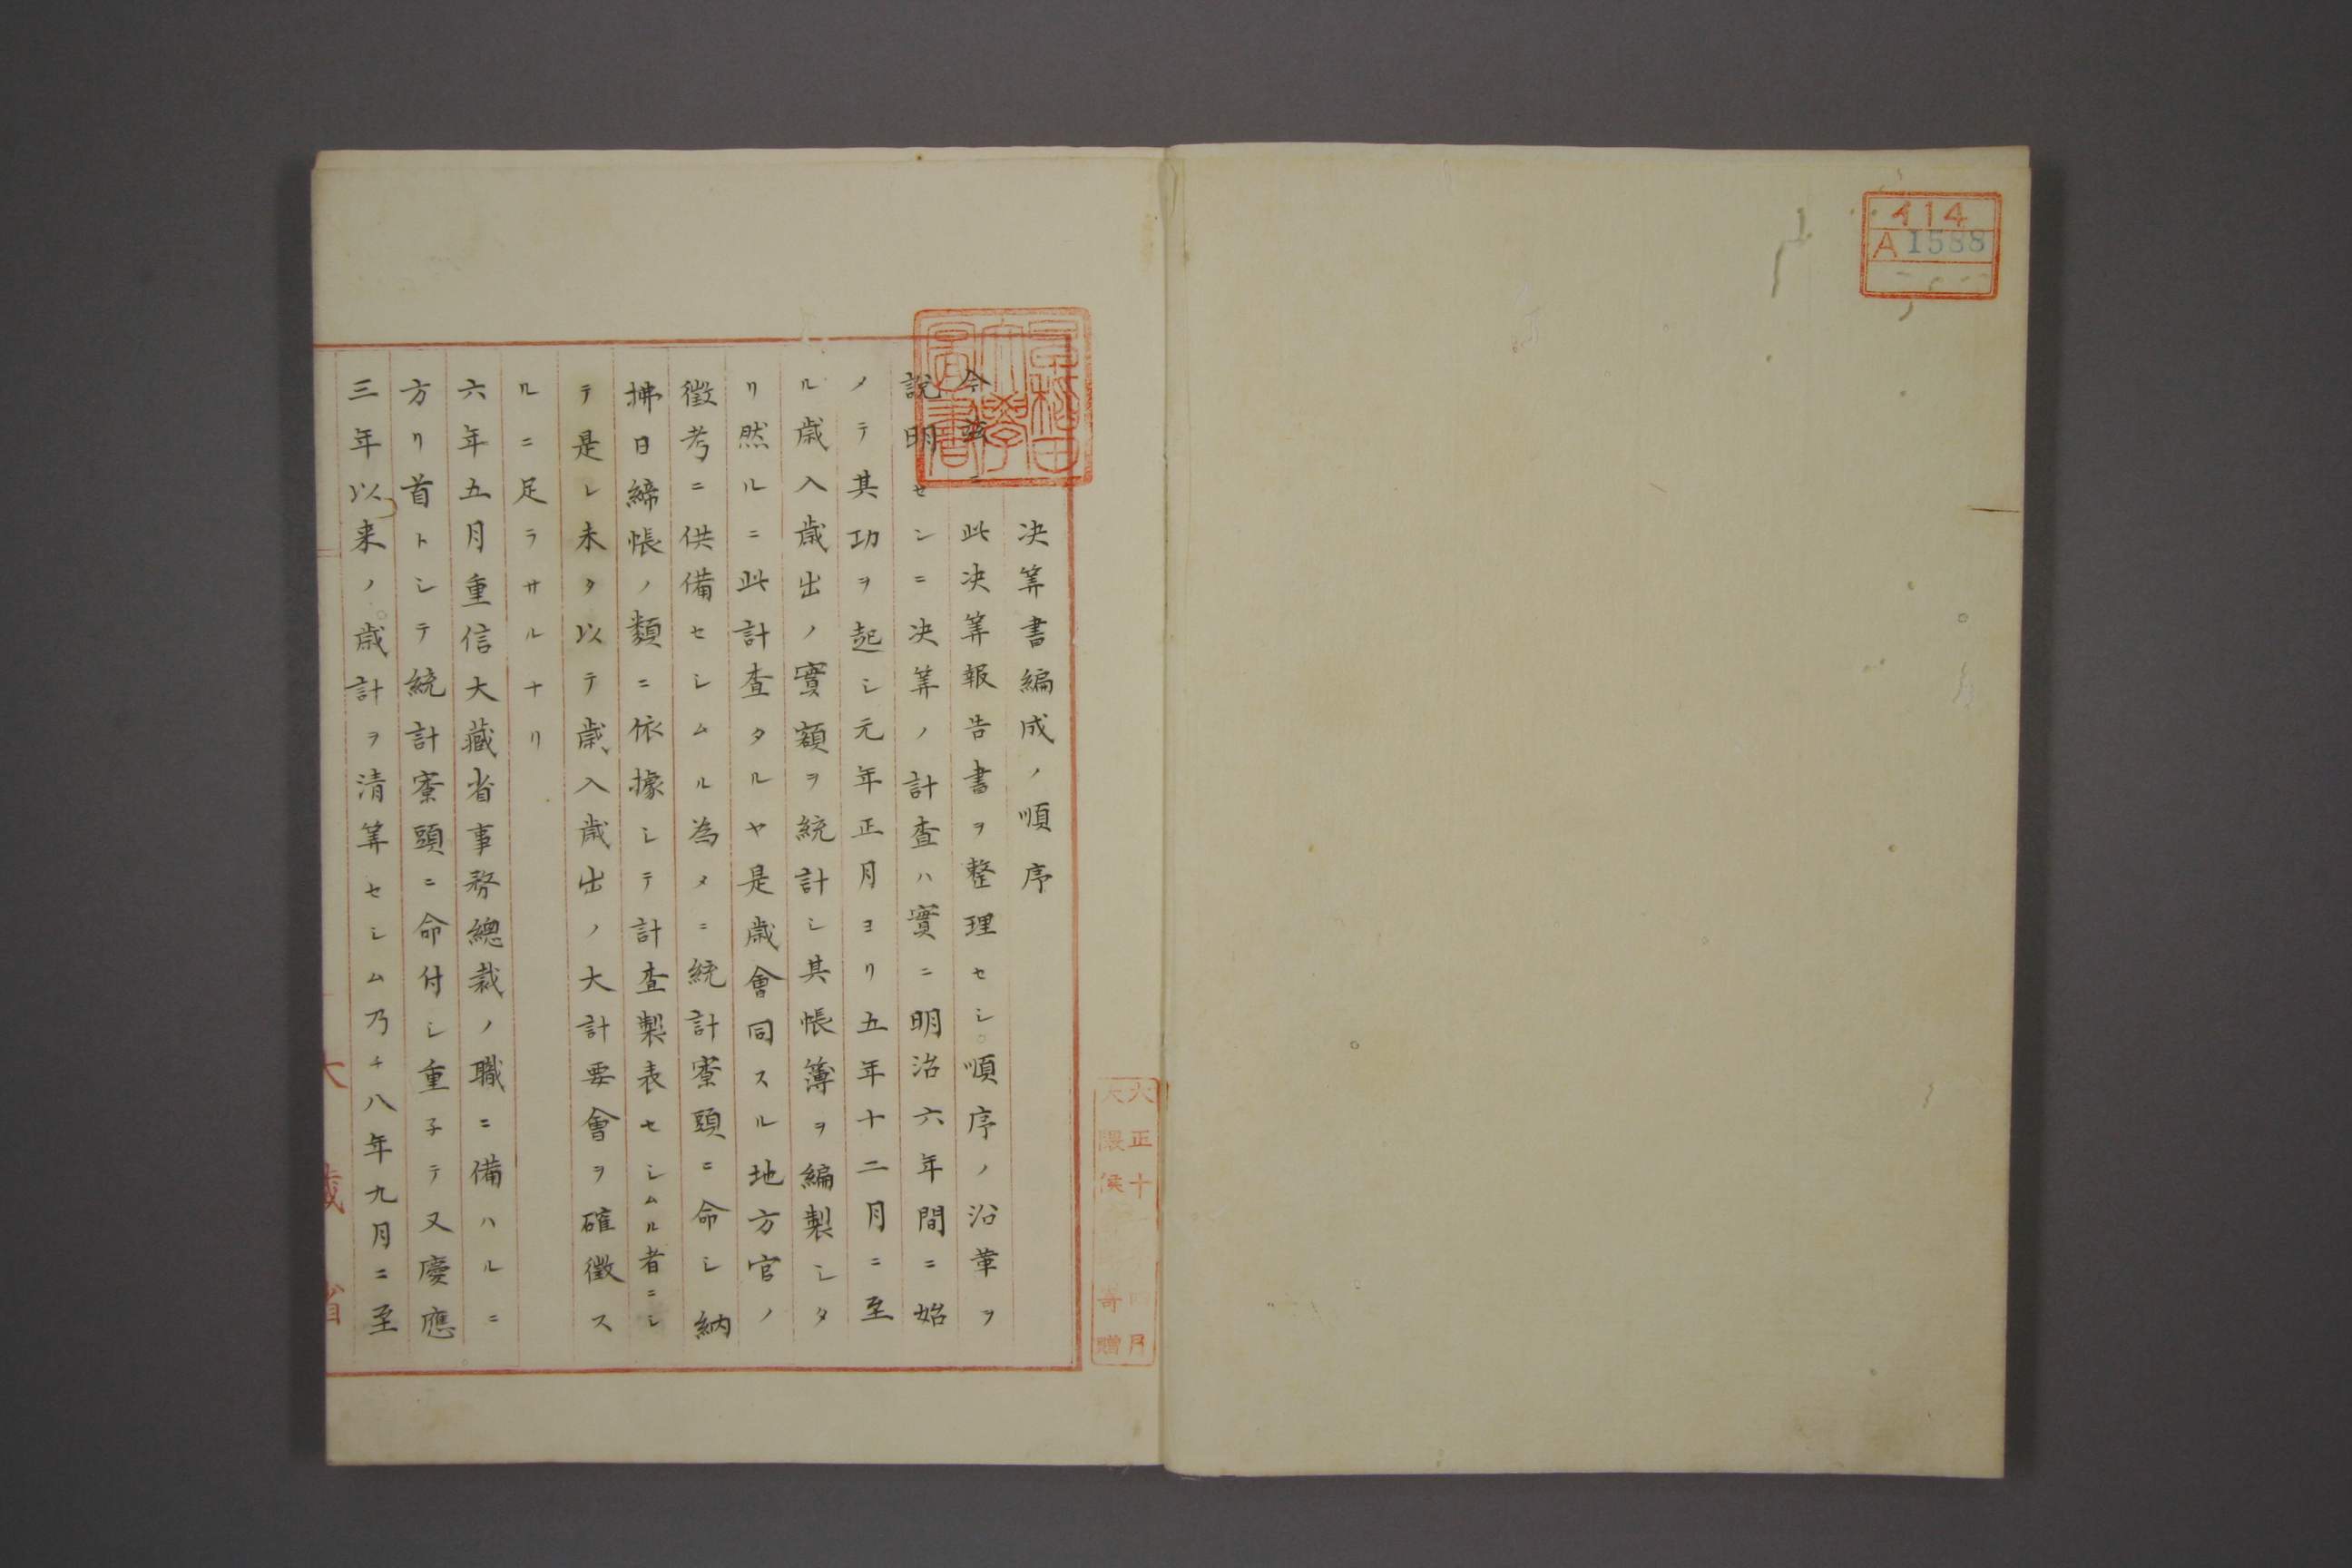 114
A 1588
决筭書編成ノ順序
今茲ニ此决筭報告書ヲ整理セシ順序ノ沿革ヲ
說明センニ决筭ノ計查ハ實ニ明治六年間ニ始
メテ其功ヲ起シ元年正月ヨリ五年十二月ニ至
ル歲入歲出ノ實額ヲ統計シ其帳簿ヲ編製シタ
リ然ルニ此計查タルヤ是歲會同スル地方官ノ
徵考ニ供備セシムル為メニ統計寮頭ニ命シ納
拂日締帳ノ類ニ依據シテ計查製表セシムル者ニシ
テ是レ未タ以テ歲入歲出ノ大計要會ヲ確徵ス
ルニ足ラサルナリ
六年五月重信大藏省事務總裁ノ職ニ備ハルニ
方リ首トシテ統計寮頭ニ命付シ重子テ又慶應
三年以来ノ歲計ヲ清筭セシム乃チ八年九月ニ至
大藏省
早稻田
大學
圖書
大正十 四月
大隈侯 寄贈